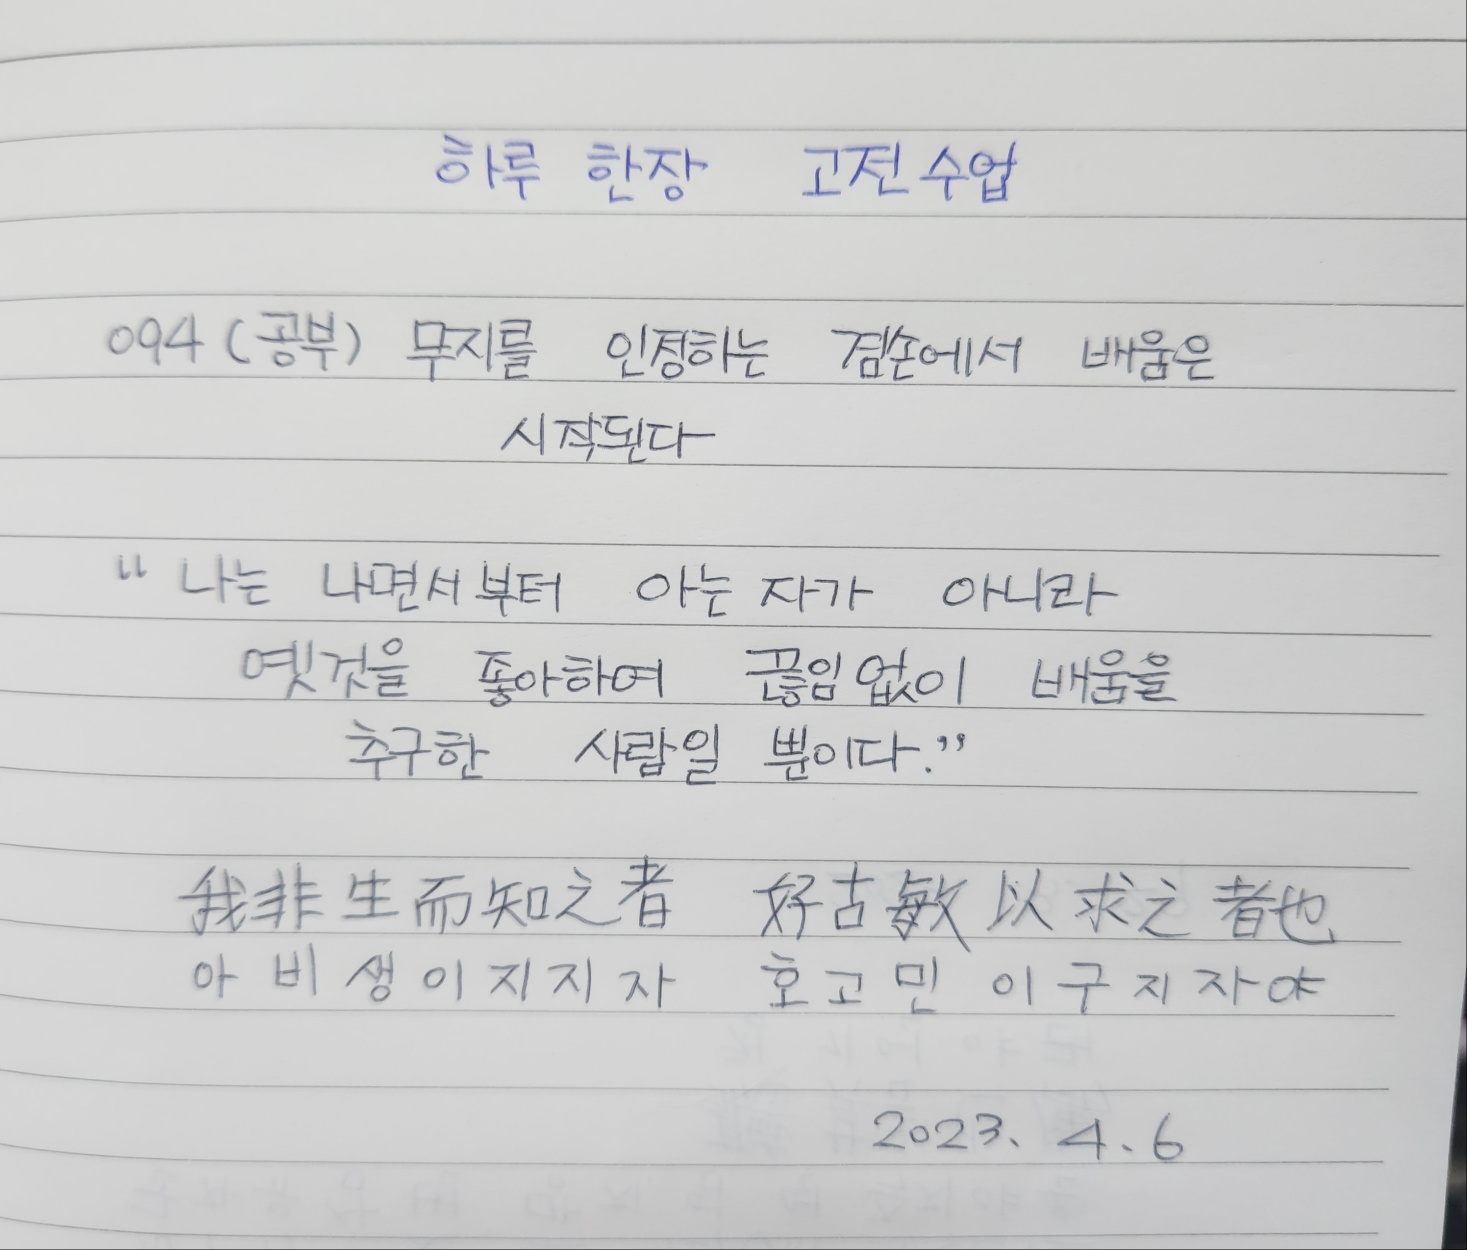 하루 한장 고전수업
094 (공부) 무지를 인정하는 겸손에서 배움은
시작된다
“나는 나면서부터 아는 자가 아니라
옛것을 좋아하여 끊임없이 배움을
추구한 사람일 뿐이다.”
我非生而知之者 好古敏以求之者也
아비생이지지자 호고민이구지자야
2023. 4. 6